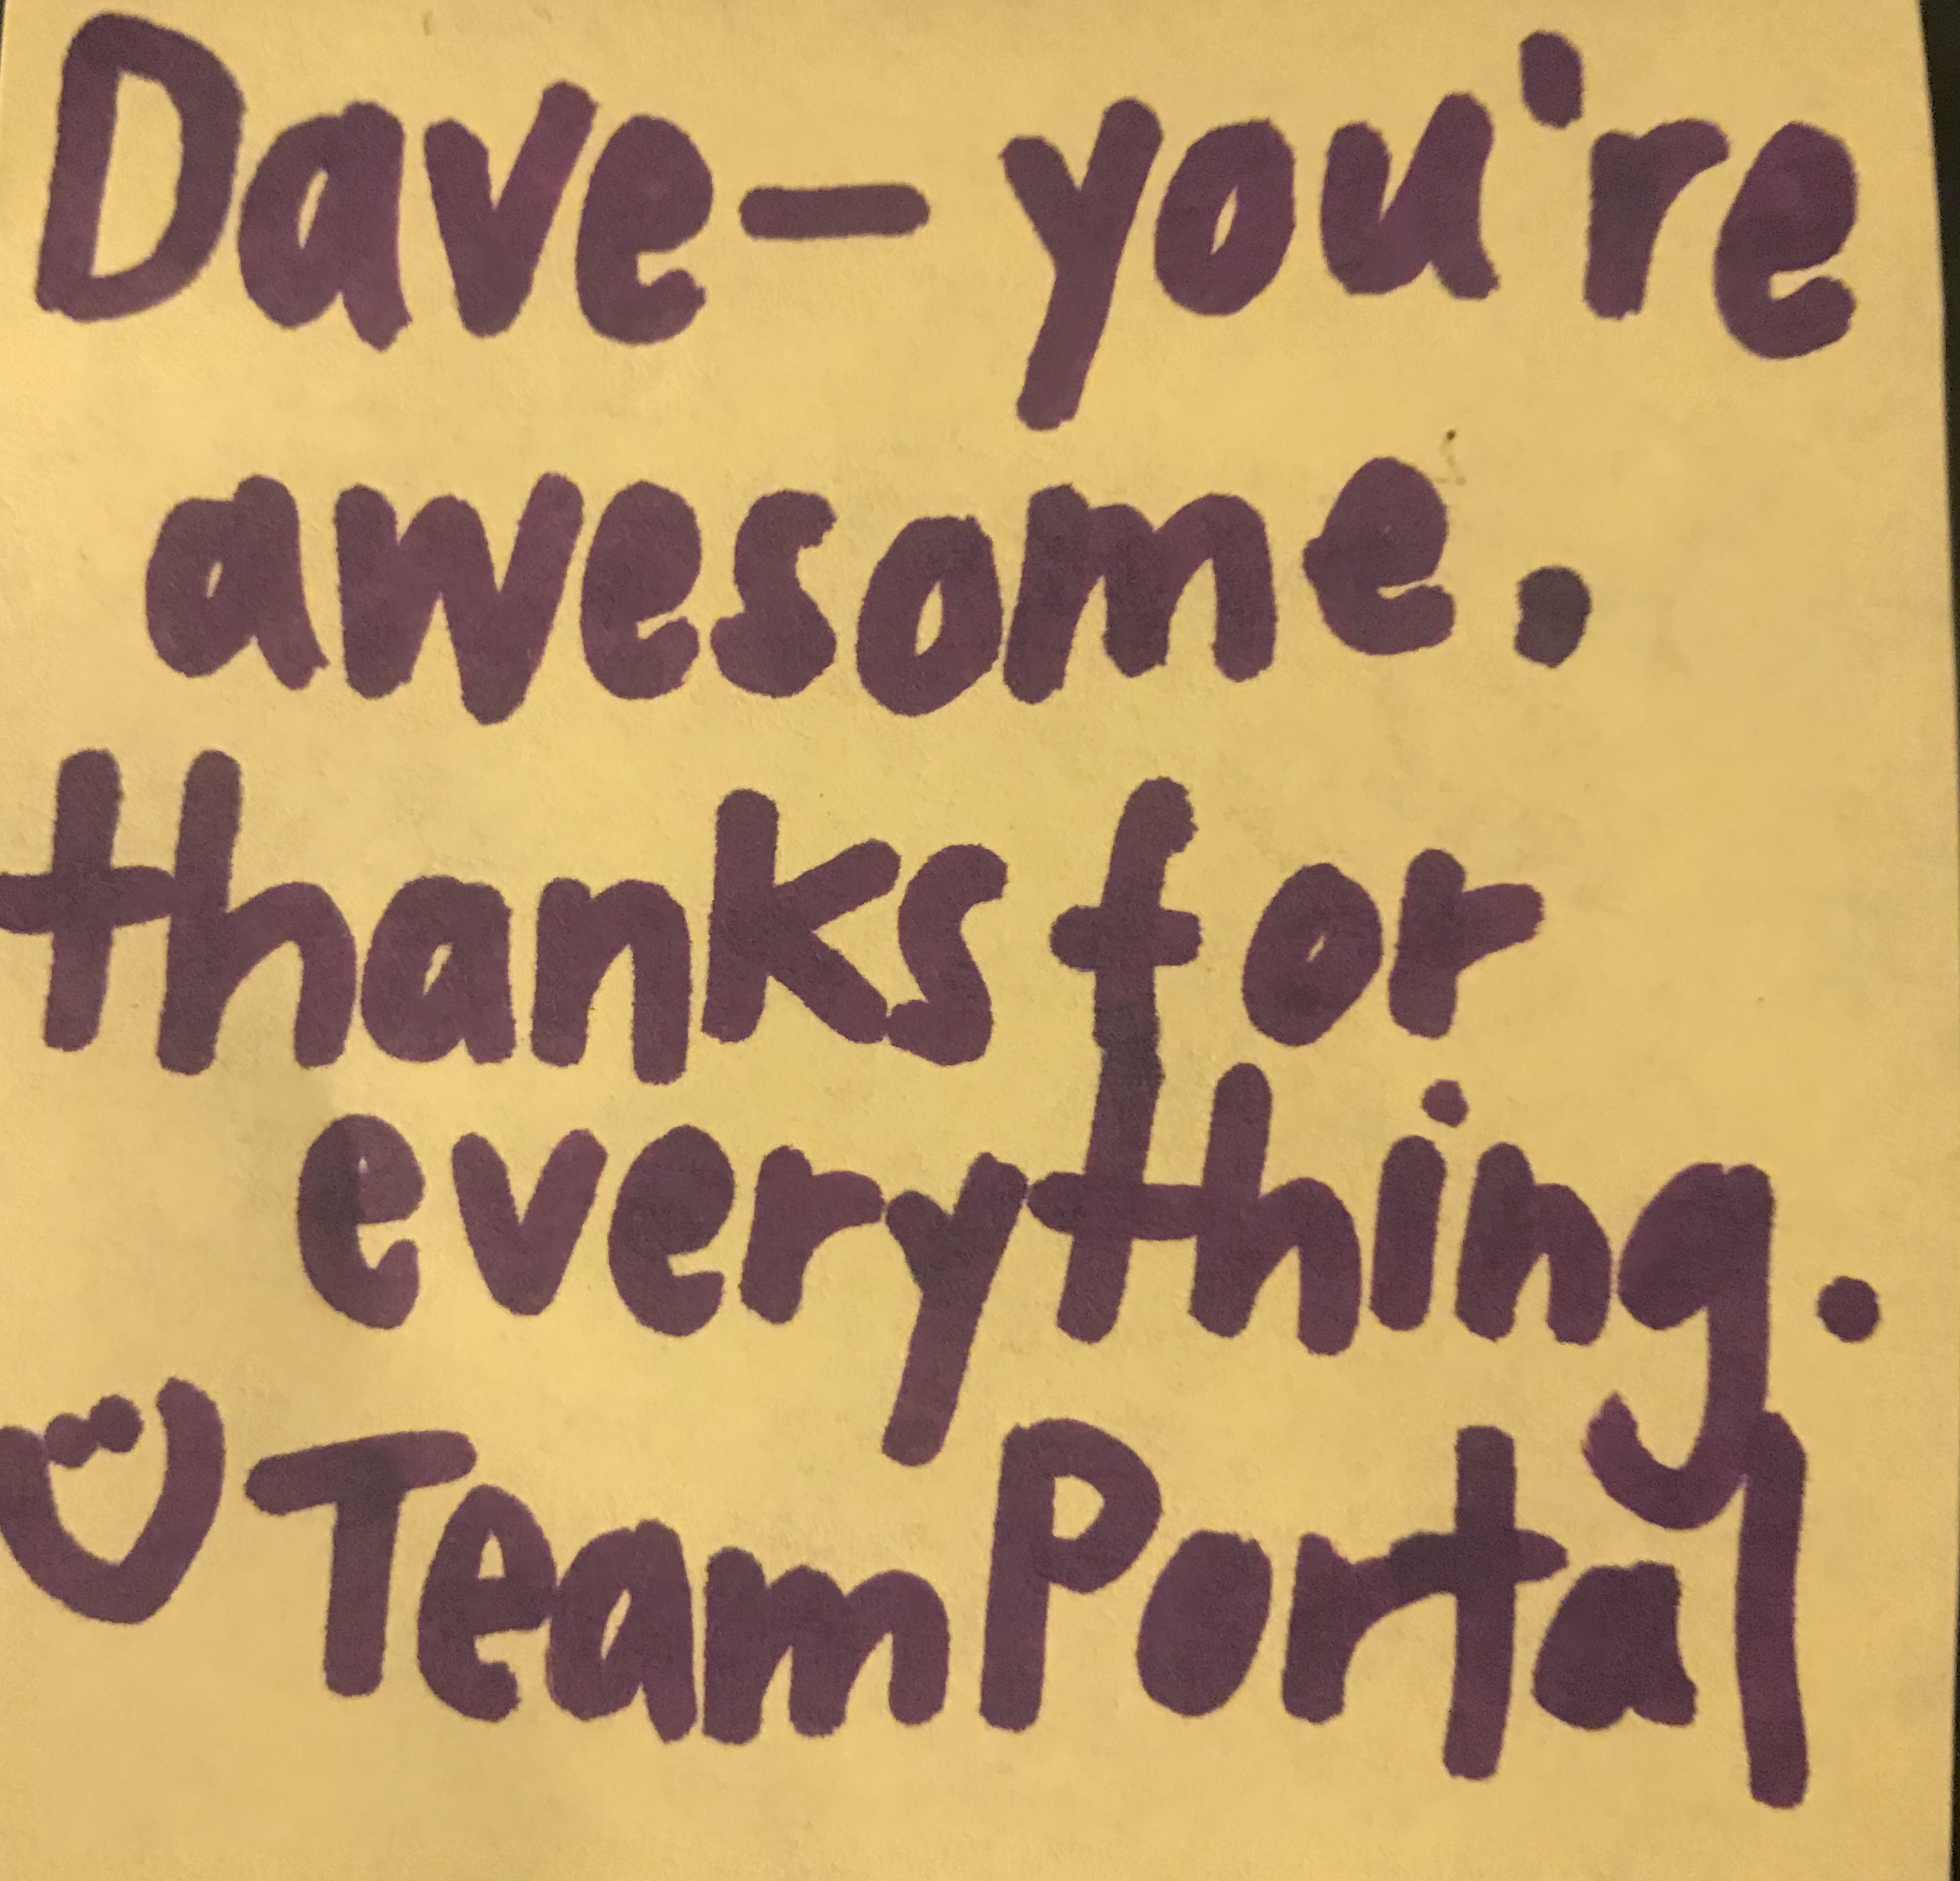 Dave— you're
awesome.
thanks for
everything.
Team Portal